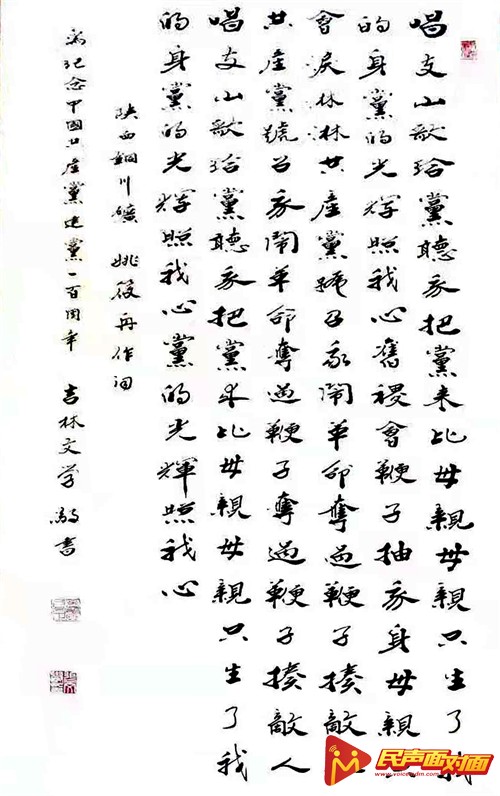 唱支山歌給黨聽我把黨来比母親母親只生了我
的身黨的光輝照我心舊社會鞭子抽我身母親只
會淚林淋共產黨號召我鬧革命奪過鞭子揍敵
共產黨號召我鬧革命奪過鞭子奪過鞭子揍敵人
唱支山歌給黨聽我把黨来比母親母親只生了我
的身黨的光輝照我心黨的光輝照我心
陝西銅川礦 姚筱舟作词
為紀念中國共產黨建黨一百周年 吉林文学敬書
民声面对面